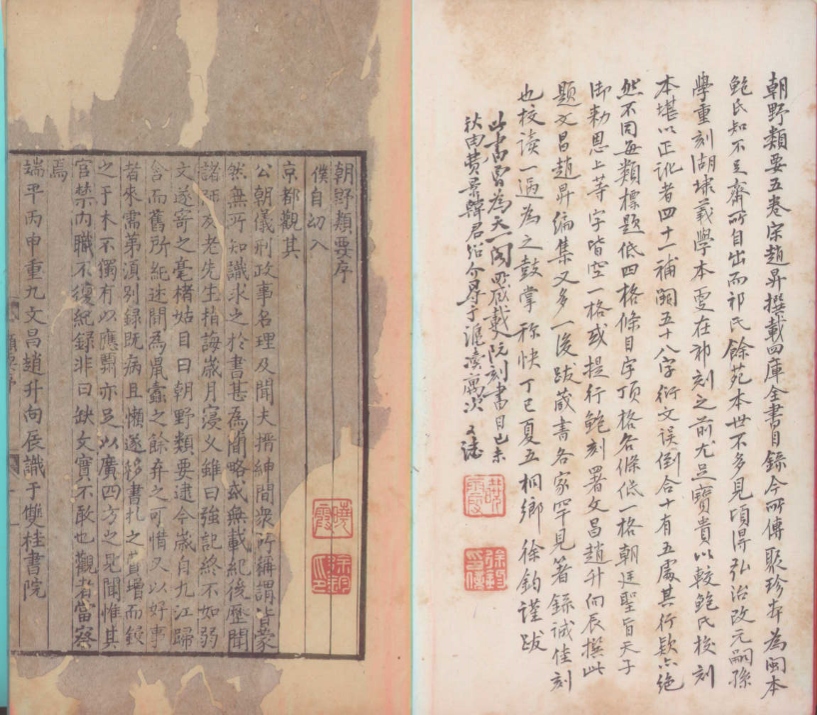 朝野類要五卷宋趙昇撰載四庫全書目錄今所傳聚珍本為閩本
鮑氏知不足齋所自出而祁氏餘苑本世不多見頃得弘治改元嗣孫
學重刻湖埭義學本更在祁刻之前尤足寶貴以較鮑氏校刻
本堪以正訛者四十一補闕五十八字衍文誤倒合十有五處其行款亦絕
然不同每類標題低四格條目字頂格各條低一格朝廷聖旨天子
御勅恩上等字皆空一格或提行鮑刻署文昌趙升向辰撰此
題文昌趙昇編集又多一後跋藏書各家罕見著錄誠佳刻
也校讀一過為之鼓掌稱快丁巳夏五桐鄉徐鈞謹跋
此書曾為天一閣所藏載阮刻書目己未
秋由費景韓君紹介尋于滬瀆寓次又誌
朝野類要序
僕自幼入
京都觀其
公朝儀刑政事名理及聞夫搢紳間眾所稱謂皆蒙
然無所知識求之於書甚為簡略或無載紀後歷聞
諸師友老先生指誨歲月寖久雖曰強記終不如弱
文遂寄之毫楮姑目曰朝野類要逮今歲自九江歸
舍而舊所紀述間為鼠蠹之餘弃之可惜又以好事
者來需弟滇別錄既病且懶遂銷書札之費增而鋟
之于木不獨有以應酬亦足以廣四方之見聞惟其
官禁內職不復紀錄非曰缺文實不敢也觀者當察
焉
端平丙申重九文昌趙升向辰識于雙桂書院
曉霞
徐鈞